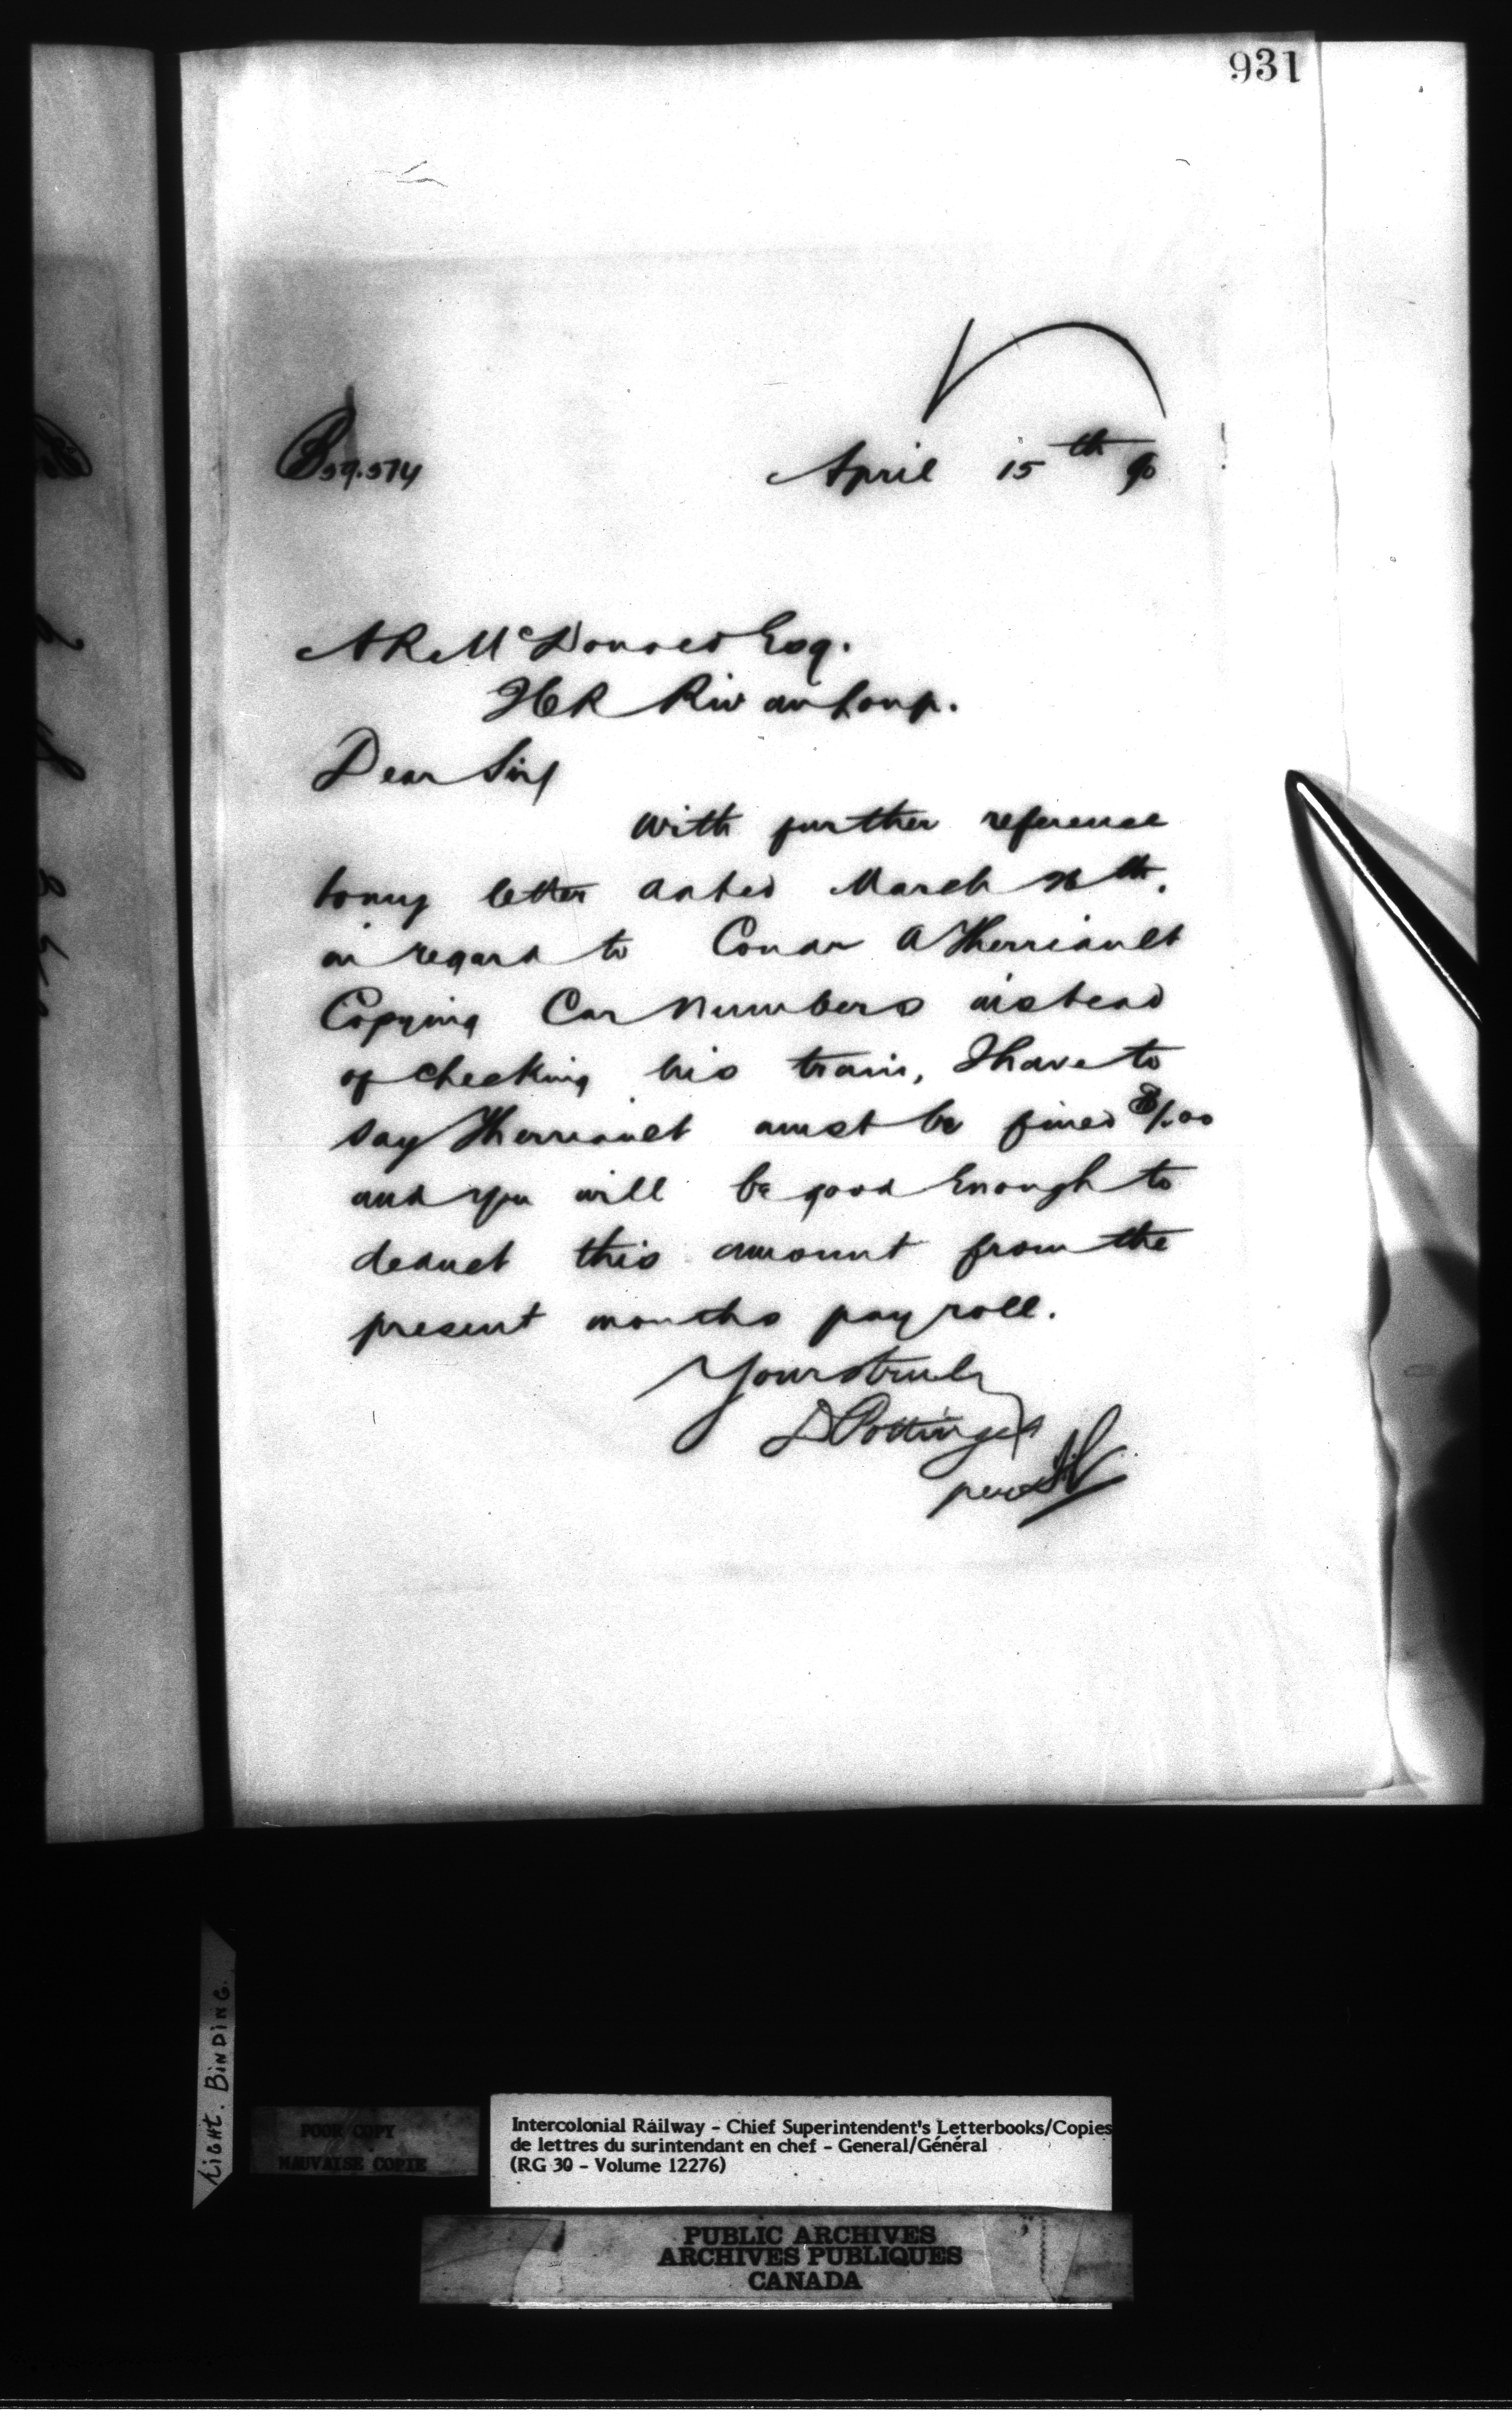 931
B 59.574
April 15th 90
A R McDonald Esq.
ICR Riv du Loup.
Dear Sir/
With further reference
to my letter dated March 26th.
in regard to Condr A Therriault
Copying Car Numbers instead
of checking his train, I have to
say Therriault must be fined $1.00
and you will be good Enough to
deduct this amount from the
present months pay roll.
Yours truly
D Pottinger
per
LIGHT. BINDING.
POOR COPY
MAUVAISE COPIE
Intercolonial Railway - Chief Superintendent's Letterbooks/Copies
de lettres du surintendant en chef - General/Général
(RG 30 - Volume 12276)
PUBLIC ARCHIVES
ARCHIVES PUBLIQUES
CANADA